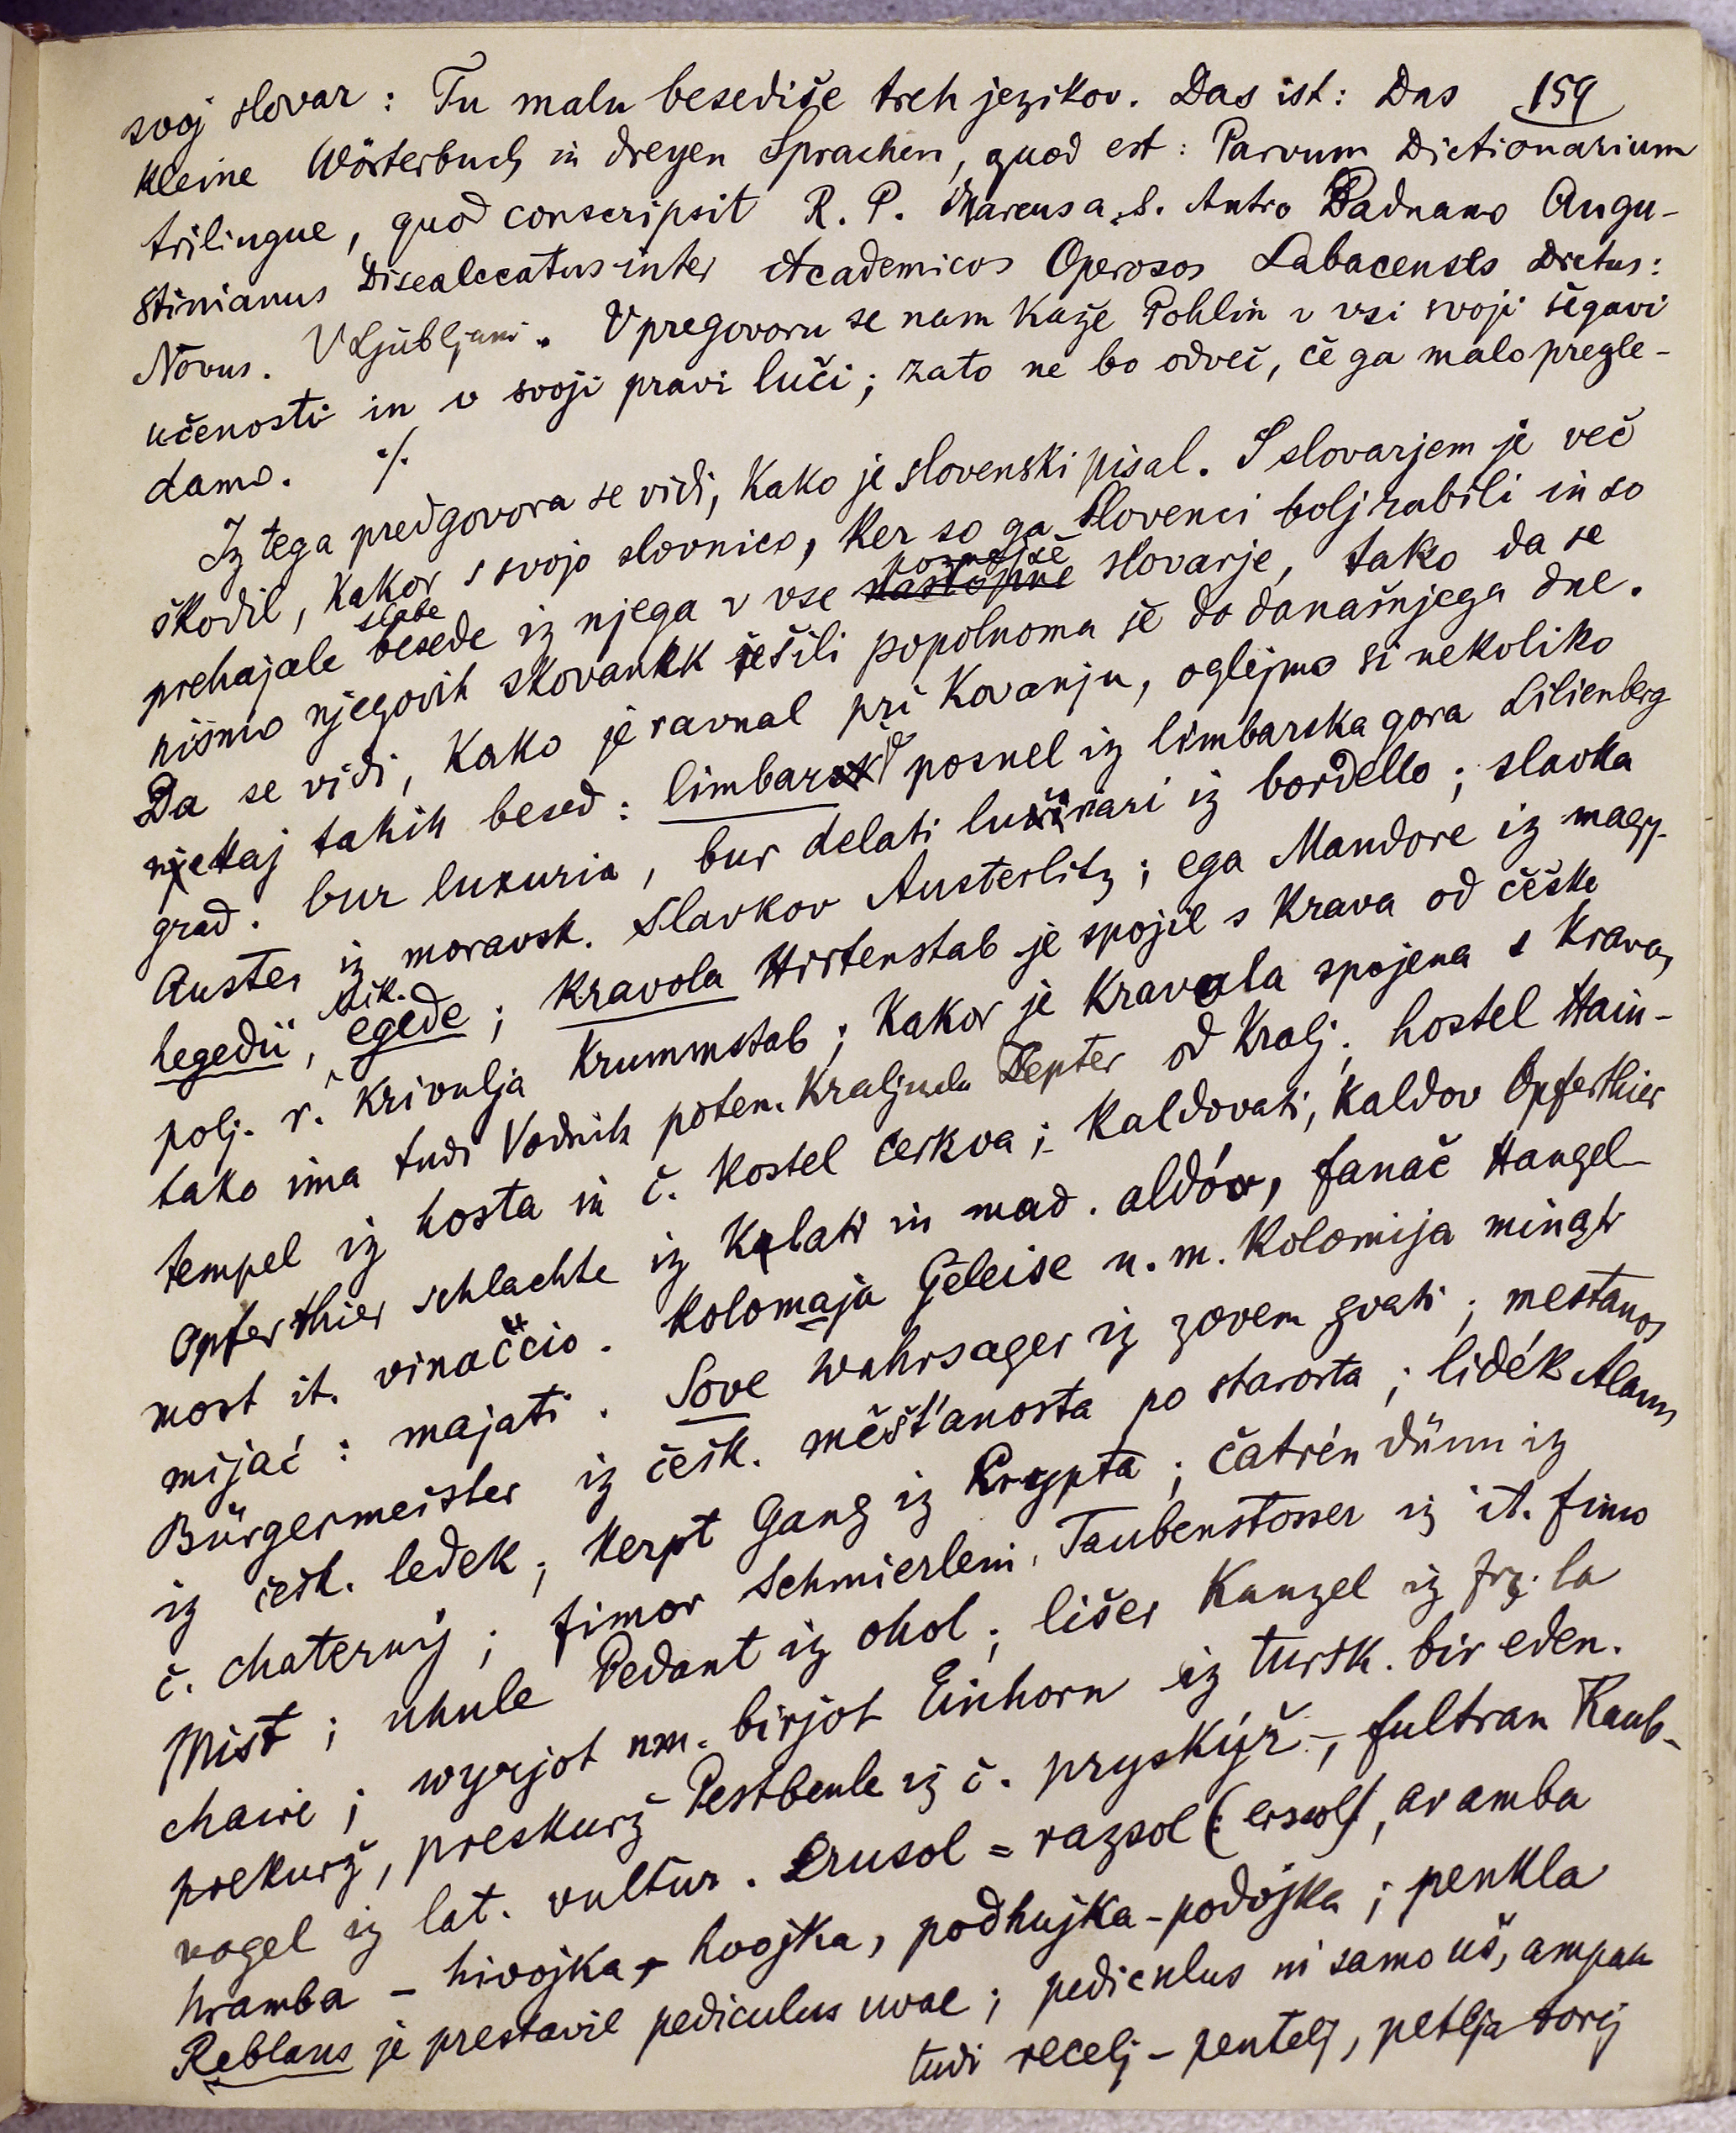 svoj slovar: Tu malu besediše treh jezikov. Das ist: Das 159
kleine Wörterbuch in dreyen Sprachen, quod est: Parvum Dictionarium
trilingue, quod conscripsit R. P. Marcus a S. Antro Paduano Augu-
stinianus Discalceatus inter Academicos Operosos Labacenses dictus:
Novus. V Ljubljani. V pregovoru se nam kaže Pohlin v vsi svoji šegavi
učenosti in v svoji pravi luči; zato ne bo odveč, če ga malo pregle-
damo. ./.
Iz tega predgovora se vidi, kako je slovenski pisal. S slovarjem je več
škodil, kakor s svojo slovnico, ker so ga Slovenci bolj rabili in so
prehajale slabe besede iz njega v vse poznejše slovarje, tako da se
nismo njegovih skovank rešili popolnoma še do današnjega dne.
Da se vidi, kako je ravnal pri kovanju, oglejmo si nekoliko
nekaj takih besed: limbar posnel iz limbarska gora Lilienberg
grad. bur luxuria, bur delati iz bordello; slavka
Auster iz moravsk. Slavkov Austerlitz; ega Mandore iz magy.
hegedü, egede; kravola Hirtenstab je spojil s krava od češke
polj. r. krivulja Krummstab; kakor je kravola spojena s krava,
tako ima tudi Vodnik potem kraljula Zepter od kralj; hostel Hain-
tempel iz hosta in č. kostel cerkva; kaldovati, kaldov Opferthier
Opferthier schlachte iz klati in mad. aldó, fanač Hangel-
most it. vinaccio. kolomaja Geleise n. m. kolomija
mijać: majati. Sove Wahrsager iz zovem zvati; mestanos
Bürgermeister iz češk. měšťanosta po starosta; lidék Alaun
iz češk. ledek; kerpt Gang iz Krypta; čatrén dünn iz
č. chaterný; fimor Schmierlein, Taubenstosser iz it. fimo
Mist; uhule Pedant iz ohol; lišer Kanzel iz frz. la
chaire; wyrjot nm. birjot Einhorn iz tursk. bir eden.
prekurž, preskurž Pestbeule iz č. pryskýř-, fultran Raub-
vogel iz lat. vultur. Erusol = razsol (: ersol), aramba
hramba - hivojka, - hvojka, podhujka - podojka; penkla
Reblaus je prestavil pediculus uvae; pediculus ni samo uš, ampak
tudi recelj - pentelj, petlja torej